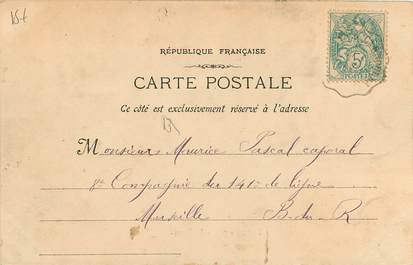 15f
RÉPUBLIQUE FRANÇAISE
5
POSTES
CARTE POSTALE
Ce côté est exclusivement réservé à l'adresse
Monsieur Meurice Pascal caporal
8e Compagnie du 141e de ligne
Marseille B. du R